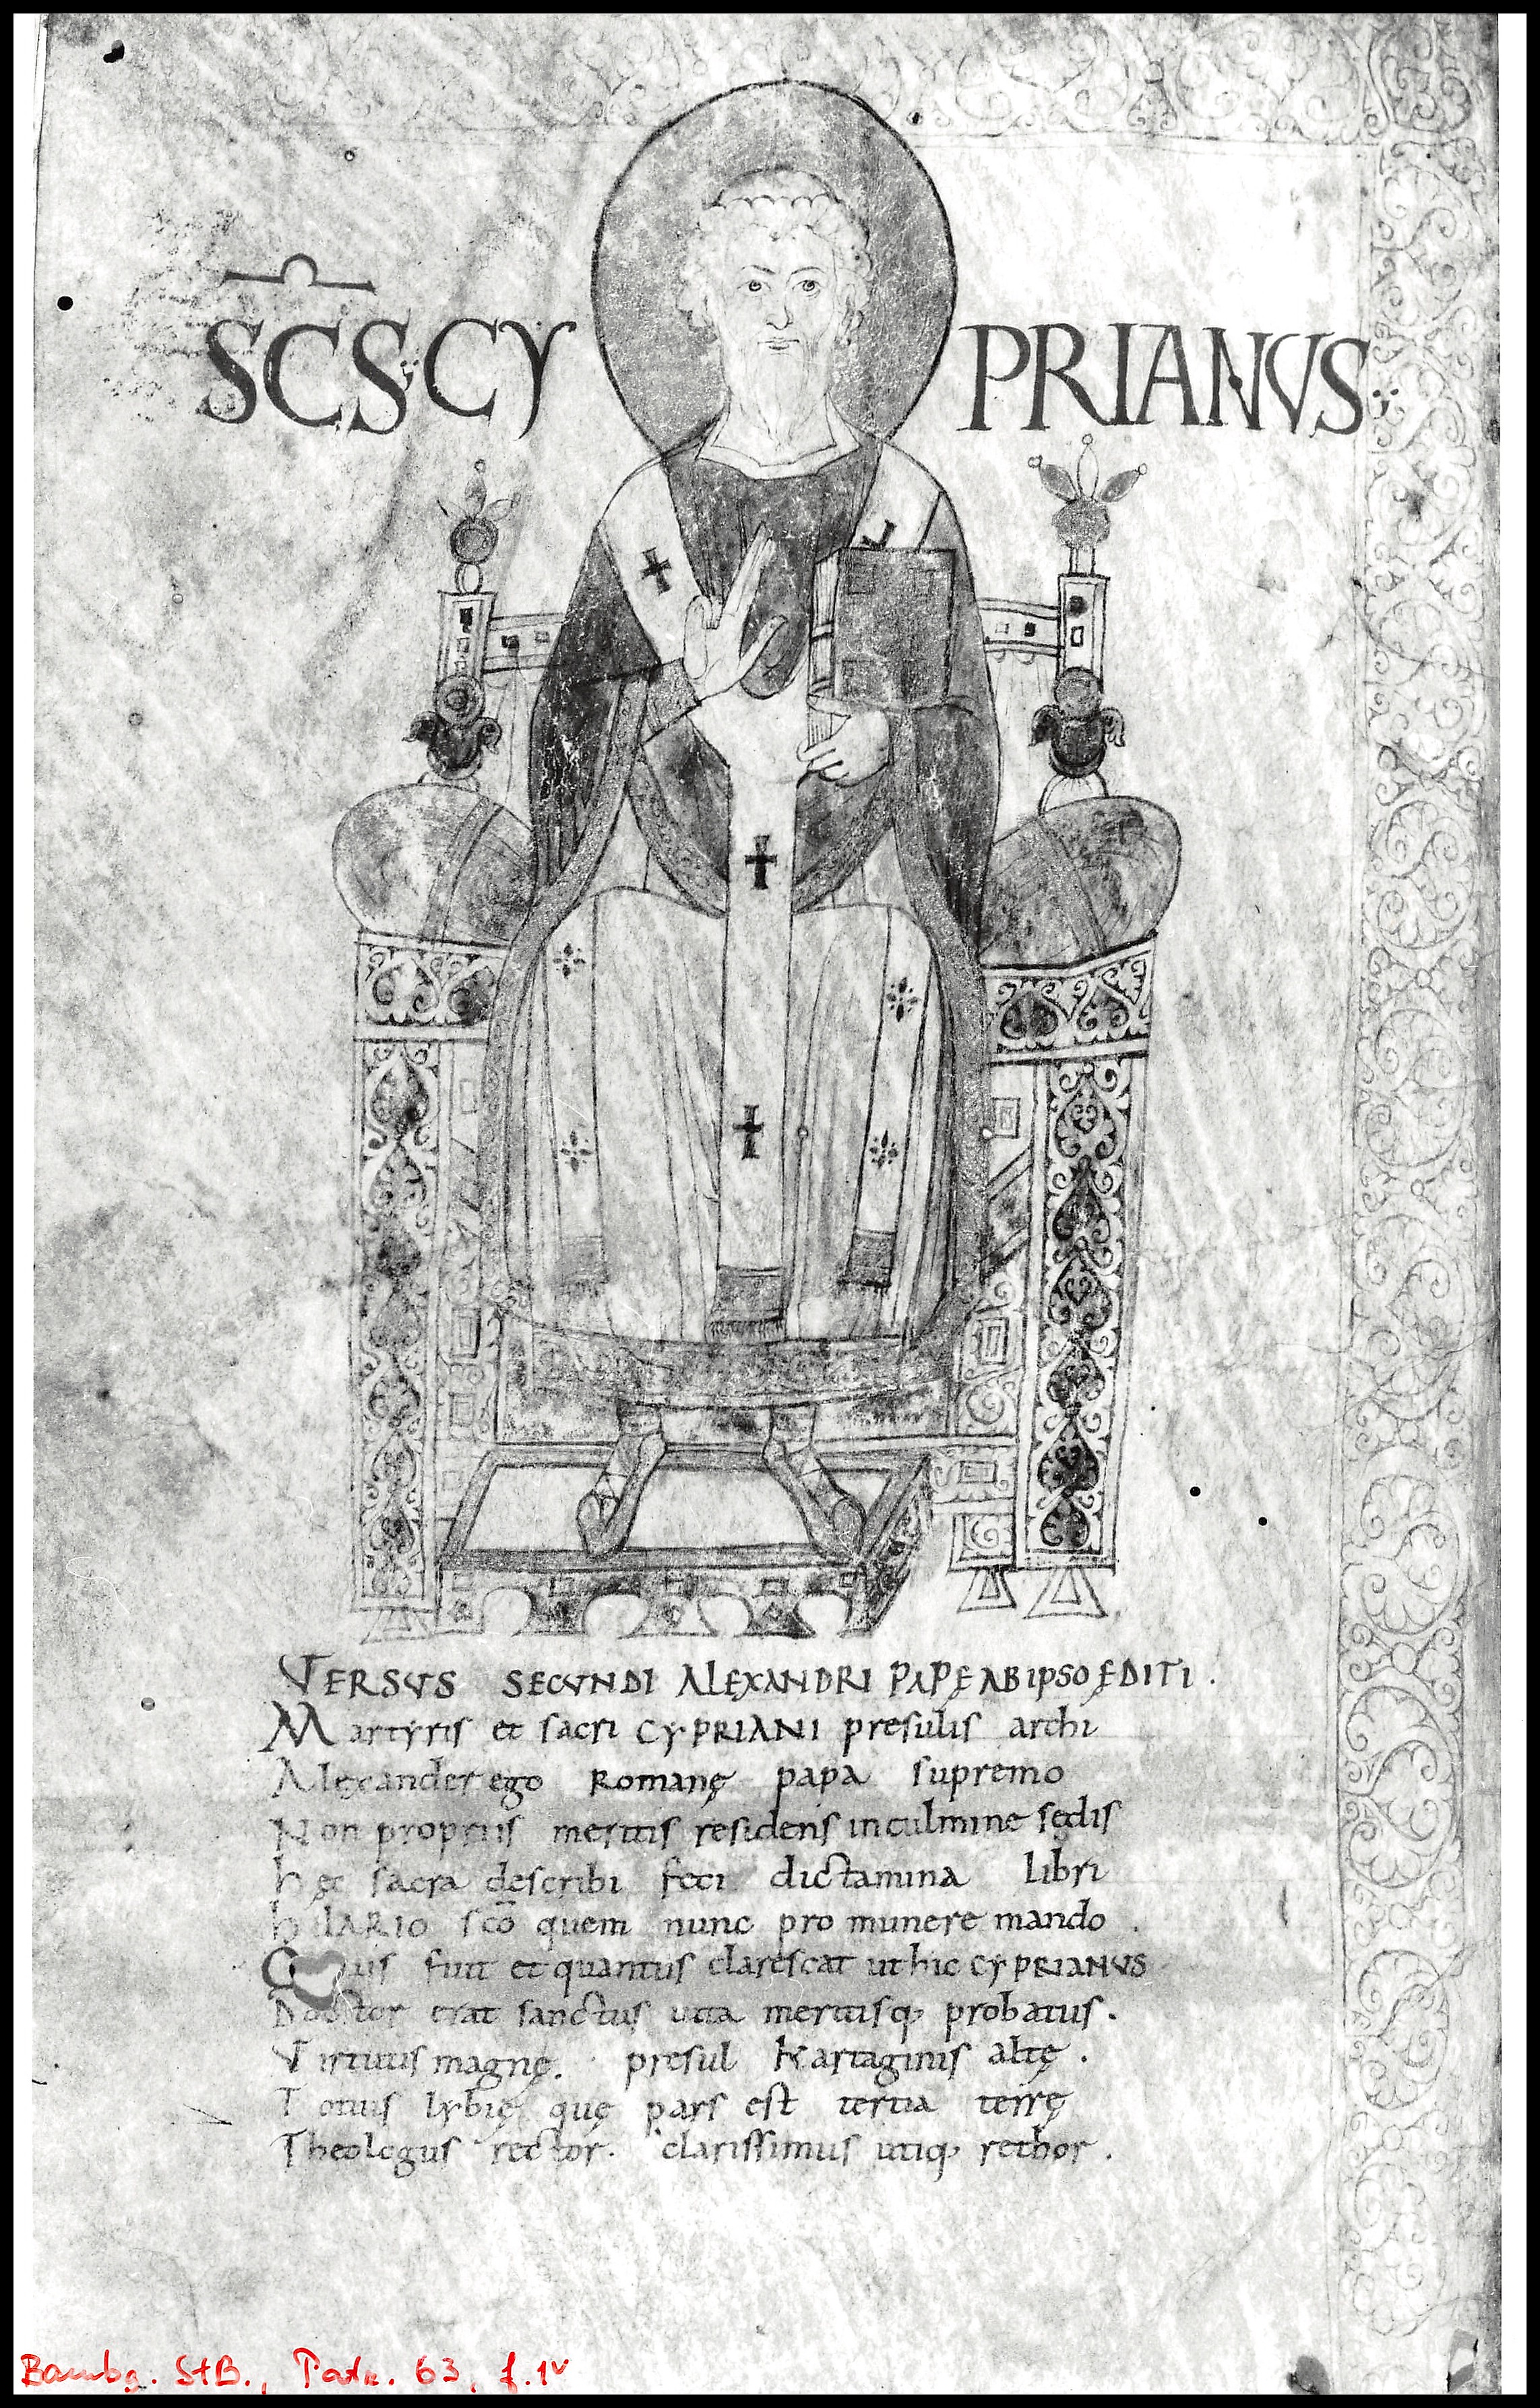 SCS CYPRIANVS
VERSVS SECVNDI ALEXANDRI PAPĘ AB IPSO ĘDITI .
Martyris et sacri CYPRIANI presulis archi
Alexander ego Romanę papa supremo
Non propriis meritis residens in culmine sędis
hęc sacra describi feci dictamina libri
hILARIO sc̄o quem nunc pro munere mando .
fuit et quantus clarescat ut hic CYPRIANVS
Doctor erat sanctus uita meritisq; probatus .
Virtutis magnę . presul Kartaginis altę .
Totius lybię quę pars est tertia terrę
Theologus rector . clarissimus utiq; rethor .
Bambg. StB., Patr. 63, f.1v